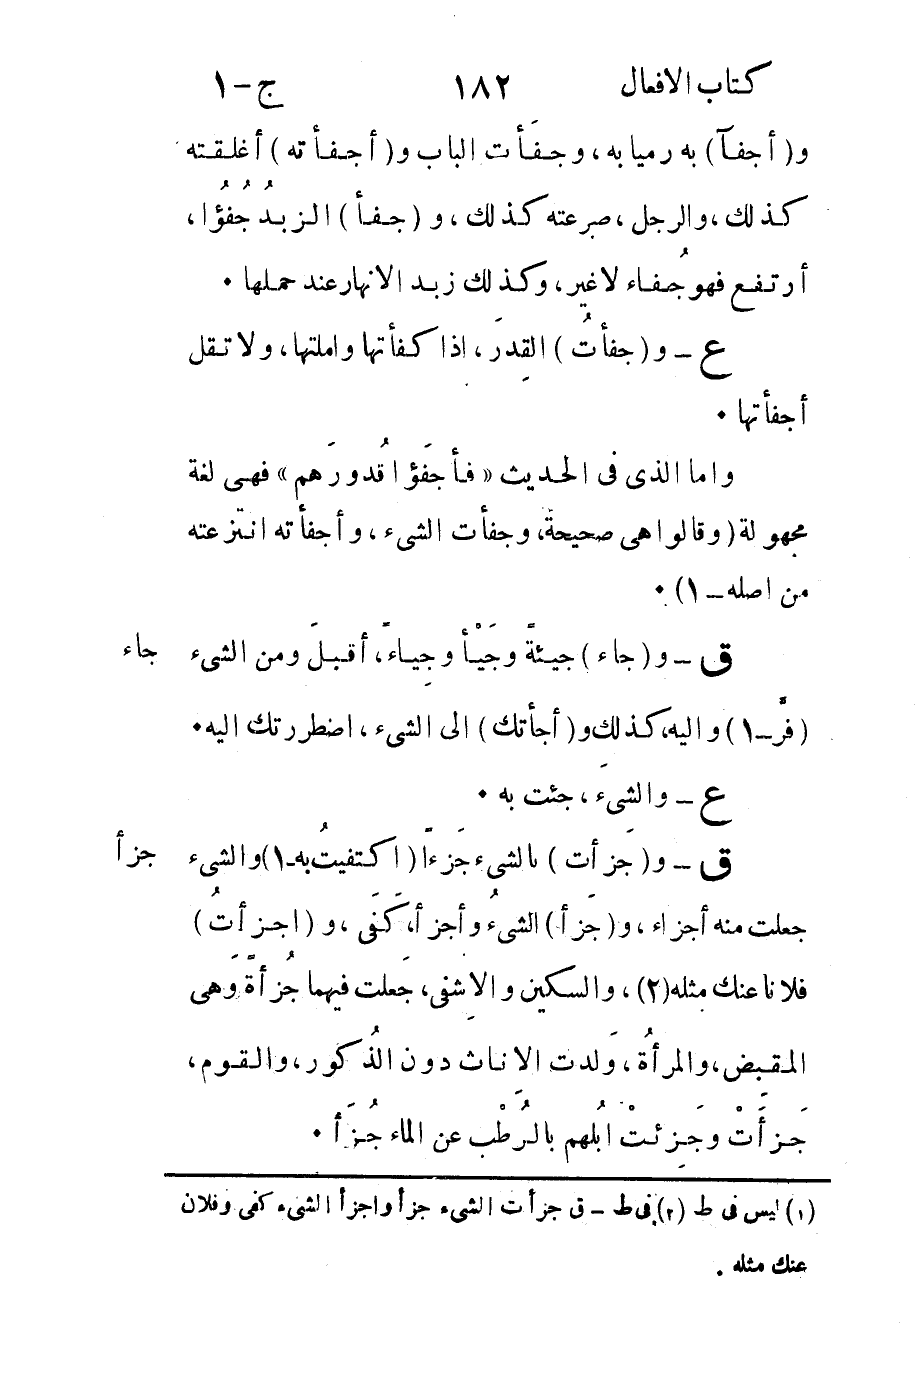 كتاب الافعال ١٨٢ ج-١
و(أجفآ) به رميا به، وجفَأت الباب و(أجفأ ته) أغلقته
كذلك، والرجل، صرعته كذلك، و(جفأ) الزبدُ جُفُؤا،
أرتفع فهو جُفاء لا غير، وكذلك زبد الانهار عند حملها ٠
ع - و(جفأتُ) القِدرَ، اذا كفأتها واملتها، ولا تقل
أجفأتها ٠
واما الذى فى الحديث «فأجفَؤا قُدورَهم» فهى لغة
مجهولة (وقالوا هى صحيحة، وجفأت الشىء، وأجفأته انتزعته
من اصله - ١) ٠
ق - و(جاء) جيئةً وجَيْأ وجِياءً، أقبلَ ومن الشىء جاء
(فرَّ - ١) واليه، كذلك و(أجأتك) الى الشىء، اضطررتك اليه ٠
ع - والشىءَ، جئت به ٠
ق - و(جزَأت) بالشىء جَزءاً (اكتفيتُ به - ١) والشىء جزأ
جعلت منه أجزاء، و(جزَأ) الشىءُ وأجزأ، كَفَى، و(اجزأتُ)
فلانا عنك مثله (٢)، والسكين والاِشفى، جَعلت فيهما جُزأةً وهى
المقبِض، والمرأةُ، وَلدت الاناث دون الذُكور، والقوم،
جَزأَتْ وجَزِئتْ ابلُهم بالرُطْبِ عن الماء جُزَأ ٠
(١) ليس فى ط (٢) فى ط - ق جزأت الشىء جزأ واجزأ الشىء كفى وفلان
عنك مثله .